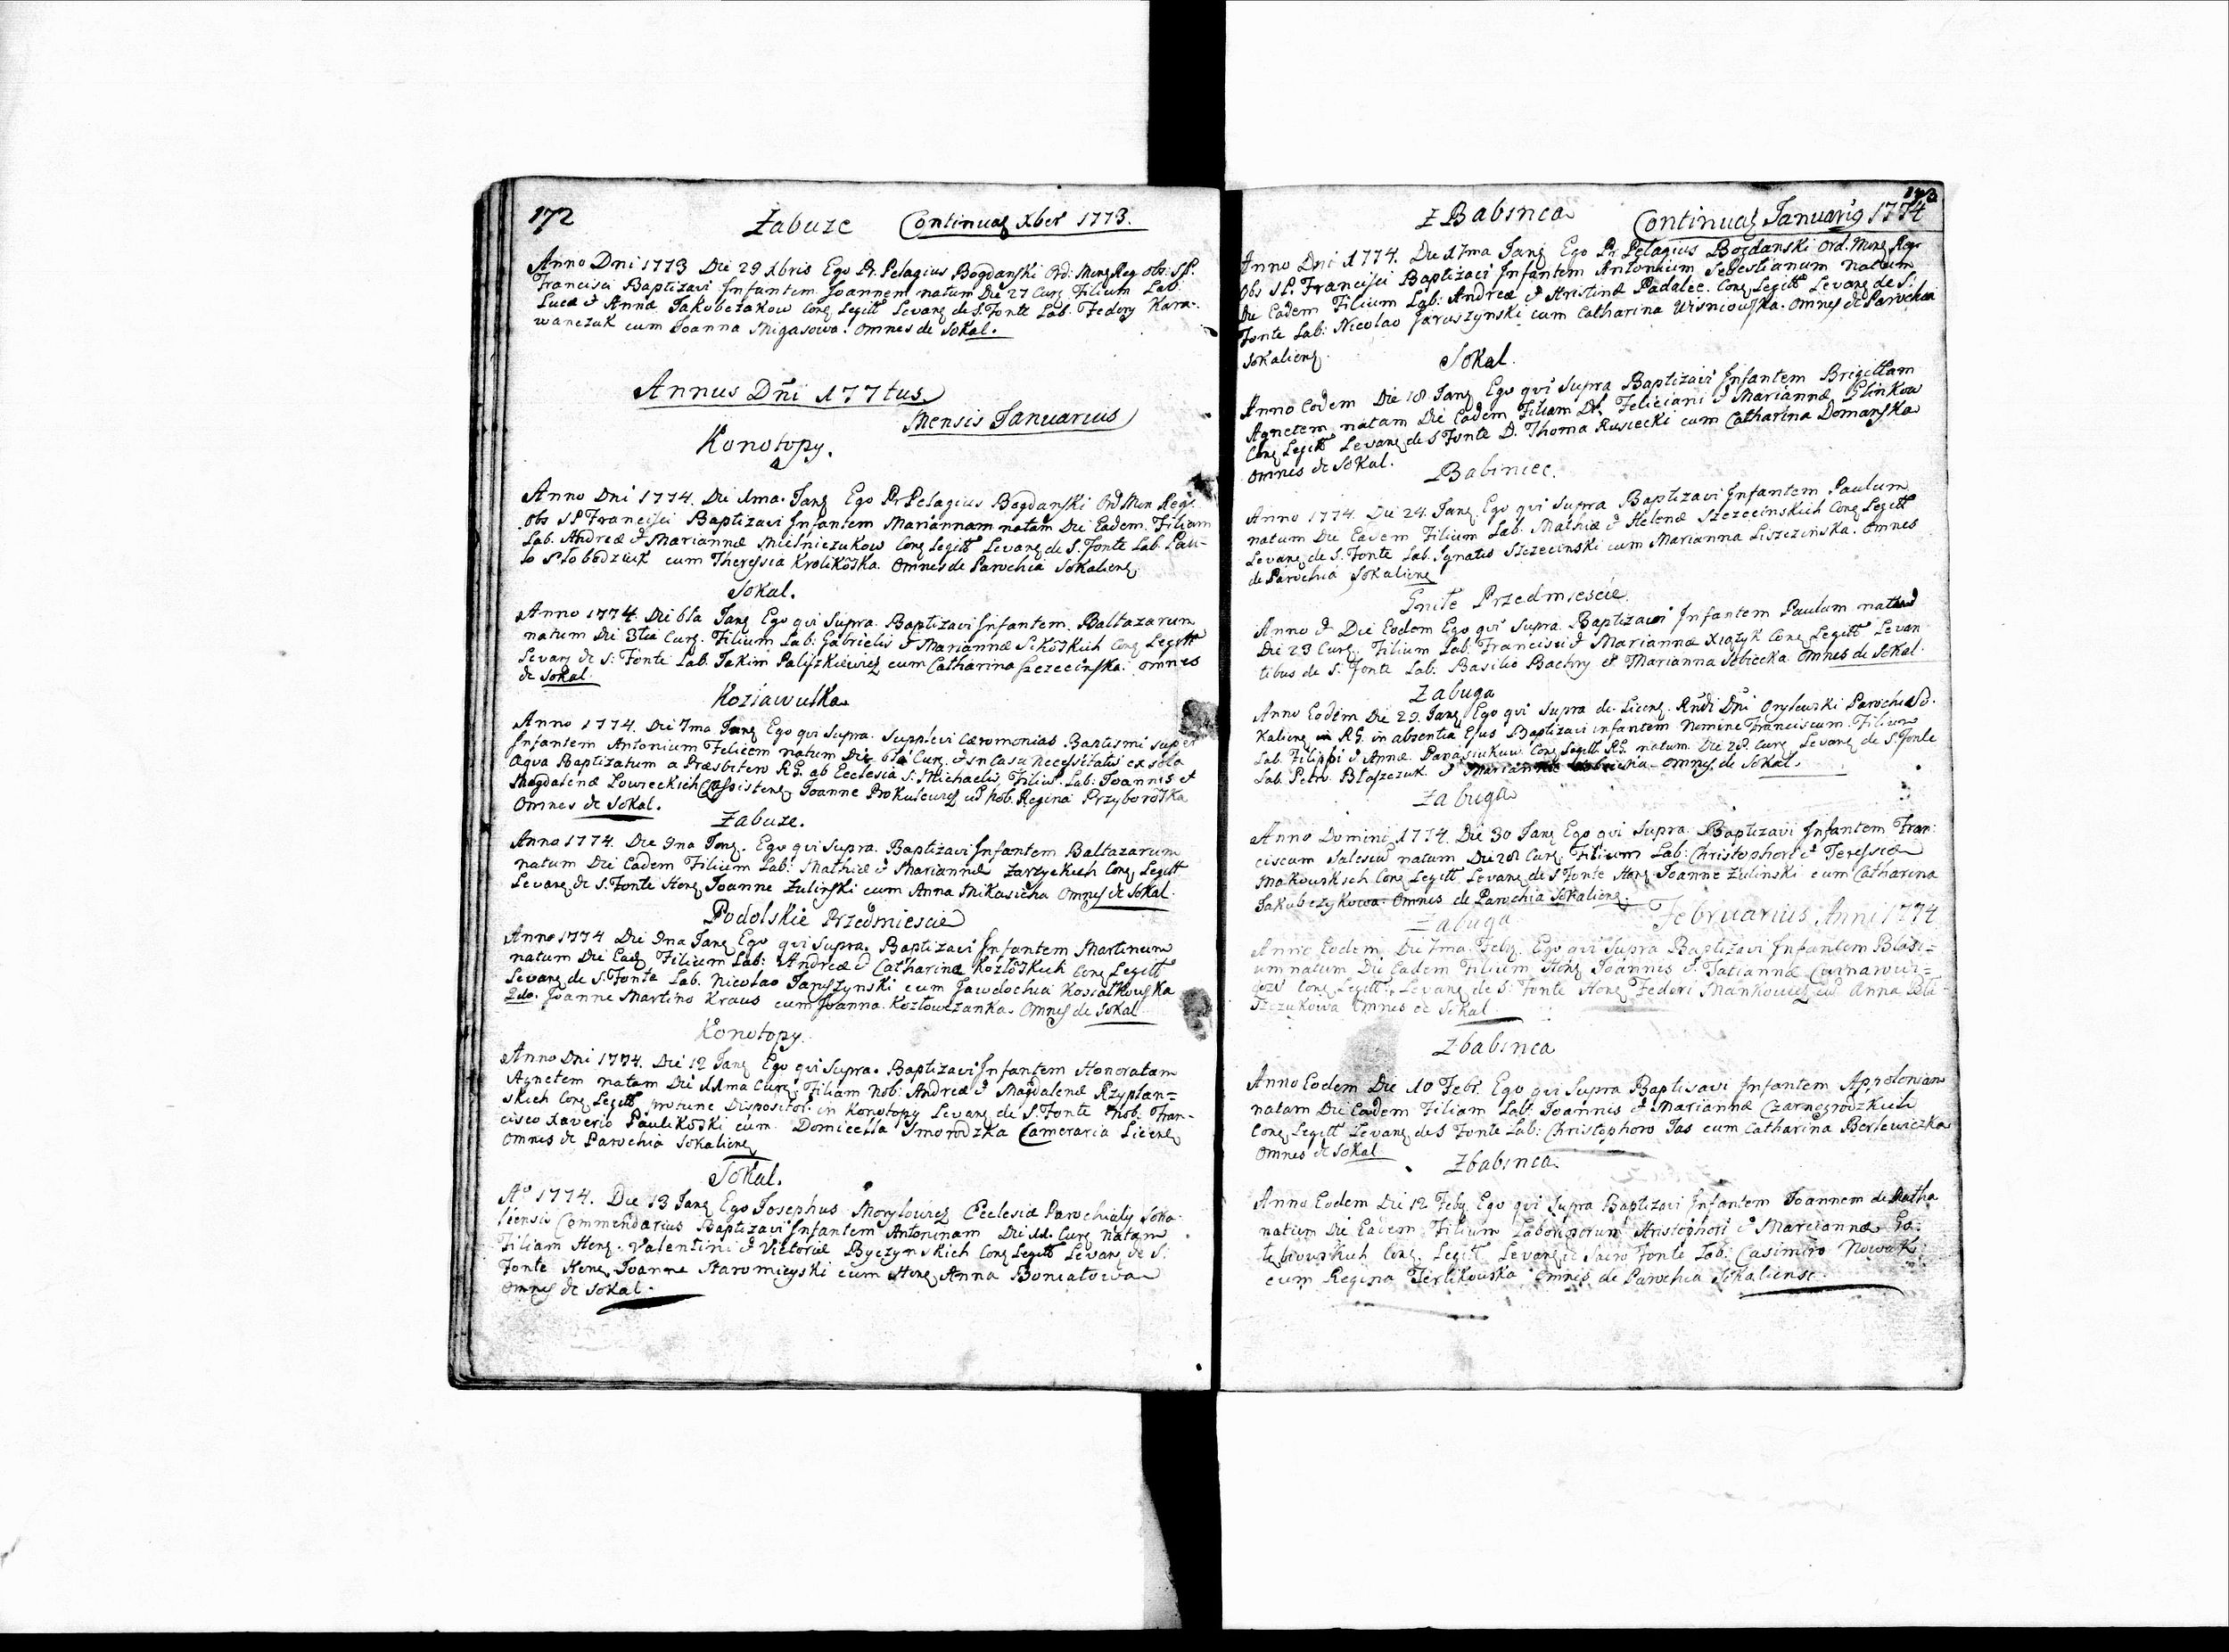 172
Zabuze Continuaʒ Xber 1773.
Anno Dni 1773 Die 29 Xbris Ego Pr. Pelagius Bogdanski Ord: Minʒ Reg: obs: S P.
Francisci Baptizavi Infantem Joannem natum Die 27 Curʒ Filium Lab:
Lucæ & Annæ Jakubczakow Conʒ Legitt Levanʒ de S. Fonte Lab. Fedory Kara-
wanczuk cum Joanna Migasowa. Omnes de Sokal.
Annus Dni 1774tus.
Mensis Januarius
Konotopy.
Anno Dni 1774. Die 1ma. Janʒ Ego Pr Pelagius Bogdanski Ord Min Regʒ
Obs S P Francisci Baptizavi Infantem Mariannam natam Die Eadem. Filiam
Lab. Andreæ & Mariannæ Mielniczukow Conʒ Legitt Levanʒ de S. Fonte Lab. Pau-
lo Słobodziuk cum Theressia Krolikoska. Omnes de Parochia Sokalienʒ
Sokal.
Anno 1774. Die 6ta Janʒ Ego qui Supra. Baptizavi Infantem. Baltazarum
natum Die 3tia Curʒ. Filium Lab: Gabrielis & Mariannæ Sikoskich Conʒ Legitt
Levanʒ de S: Fonte Lab. Jakim Paliszkiewicz cum Catharina Szczecinska. Omnes
de Sokal.
Koziawulka
Anno 1774. Die 7ma Janʒ Ego qui Supra. Supplevi Cæremonias Baptismi super
Infantem Antonium Felicem natum Die 6ta Curʒ & in Casu Necessitatis ex sola
Aqua Baptizatum a Præsbitero R.G. ab Ecclesia S. Michaelis Filiuʒ. Lab: Joannis &
Magdalenæ Lowreckich Assistenʒ Joanne Prokulewicz cū Nob. Regina Przyboroska
Omnes de Sokal.
Zabuze.
Anno 1774. Die 9na Janʒ. Ego qui Supra. Baptizavi Infantem Baltazarum
natum Die Eadem Filium Lab: Mathiæ & Mariannæ Zarzyckich Conʒ Legitt
Levanʒ de S. Fonte Honʒ Joanne Zulinski cum Anna Mikasicha Omnes de Sokal.
Podolskie Przedmiescie
Anno 1774 Die 9na Janʒ Ego qui Supra. Baptizavi Infantem Martinum
natum Die Eadʒ Filium Lab: Andreæ & Catharinæ Kozłoskich Conʒ Legitt
Levanʒ de S. Fonte Lab. Nicolao Jaruszynski cum Jawdochia Kosiatkowska
2do. Joanne Martino Kraus cum Joanna Kozłowczanka. Omnes de Sokal
Konotopy.
Anno Dni 1774. Die 12 Janʒ Ego qui Supra. Baptizavi Infantem Honoratam
Agnetem natam Die 11ma Curʒ. Filiam Nob: Andreæ & Magdalenæ Rzyplan=
skich Conʒ Legitt protunc Dispositor: in Konotopy Levanʒ de S. Fonte Nob. Fran-
cisco Xaverio Paulikoski cum Domicella Smorodzka Cameraria Licenʒ
Omnes de Parochia Sokalienʒ
Sokal.
Aº 1774. Die 13 Janʒ Ego Josephus Morylowicz Ecclesiæ Parochialis Soka-
liensis Commendarius Baptizavi Infantem Antoninam Die 11. Curʒ Natam
Filiam Honʒ. Valentini & Victoriæ Byczynskich Conʒ Legitt Levanʒ de S:
Fonte Honʒ Joanne Staromieyski cum Honʒ Anna Boniatowa
Omnes de Sokal.
173
Z Babinca Continuaʒ Januarius 1774
Anno Dni 1774. Die 17ma Janʒ Ego Pr Pelagius Bogdanski Ord. Minʒ Reg:
Obs S P. Francisci Baptizavi Infantem Antonium Sebestianum Natum
Die Eadem Filium Lab: Andreæ & Kristinæ Padalec. Conʒ Legitt Levanʒ de S:
Fonte Lab: Nicolao Jaruszynski cum Catharina Wisniowska. Omnes de Parochia
Sokalienʒ.
Sokal.
Anno Eodem Die 18. Janʒ Ego qui Supra Baptizavi Infantem Brigittam
Agnetem natam Die Eadem Filiam D. Feliciani & Mariannæ Glinkow
Conʒ Legitt Levanʒ de S Fonte D. Thoma Rusiecki cum Catharina Domanska
Omnes de Sokal.
Babiniec.
Anno 1774. Die 24. Janʒ. Ego qui Supra Baptizavi Infantem Paulum
natum Die Eadem Filium Lab. Mathiæ & Helenæ Szczecinskich Conʒ Legitt
Levanʒ de S. Fonte Lab. Ignatio Szczecinski cum Marianna Liszczinska. Omnes
de Parochia Sokalienʒ
Gniłe Przedmiescie.
Anno & Die Eodem Ego qui Supra. Baptizavi Infantem Paulum natum
Die 23 Curʒ. Filium Lab: Francisci & Mariannæ Xiązyk Conʒ Legitt Levan-
tibus de S. Fonte Lab. Basilio Bachry et Marianna Sobiecka. Omnes de Sokal.
Zabuga
Anno Eodem Die 29. Janʒ Ego qui Supra de Licenʒ. Rndi Dni Orylewski Parochi So-
kalienʒ R.G. in absentia Ejus Baptizavi infantem Nomine Franciscum. Filium
Lab. Filippi & Annæ Conʒ Legitt R.G. natum. Die 28. Curʒ Levanʒ de S. Fonte
Lab. Petro Błaszczuk. & Marianna Omnes de Sokal.
Zabuga
Anno Domini 1774. Die 30 Janʒ Ego qui Supra. Baptizavi Infantem Fran-
ciscum Salesiū natum Die 28 Curʒ. Filium Lab: Christophori & Teressiæ
Makowskich Conʒ Legitt Levanʒ de S Fonte Honʒ Joanne Zulinski cum Catharina
Jakubczykowa. Omnes de Parochia Sokalienʒ.
Zabuga Februarius Anni 1774
Anno Eodem. Die 7ma. Febʒ. Ego qui Supra Baptizavi Infantem Blasi=
um natum Die Eadem Filium Honʒ Joannis & Tatiannæ
Conʒ Legitt. Levanʒ de S: Fonte Honʒ Fedori Mankowicz cū Anna Bła-
szczukowa Omnes de Sokal
Zbabinca
Anno Eodem Die 10 Febr. Ego qui Supra Baptisavi Infantem Appolonian
natam Die Eadem Filiam Lab. Joannis & Mariannæ Czarnogrodzkich
Conʒ Legitt Levanʒ de S Fonte Lab: Christophoro Jas cum Catharina Berlewiczka
Omnes de Sokal
Zbabinca.
Anno Eodem Die 12 Febʒ. Ego qui Supra Baptizavi Infantem Joannem de Matha
natum Die Eadem Filium Laboriosorum Kristophori & Mariannæ Go-
łębiowskich Conʒ. Legitt. Levanʒ de Sacro Fonte Lab: Casimiro Nowak
cum Regina Terlikowska Omnes de Parochia Sokaliensi.